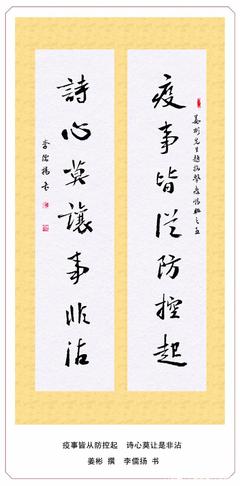 疫事皆從防控起
姜彬先生題抗擊疫情聯之五
詩心莫讓事非沾
李儒揚书
疫事皆从防控起 诗心莫让是非沾
姜彬 撰 李儒扬 书